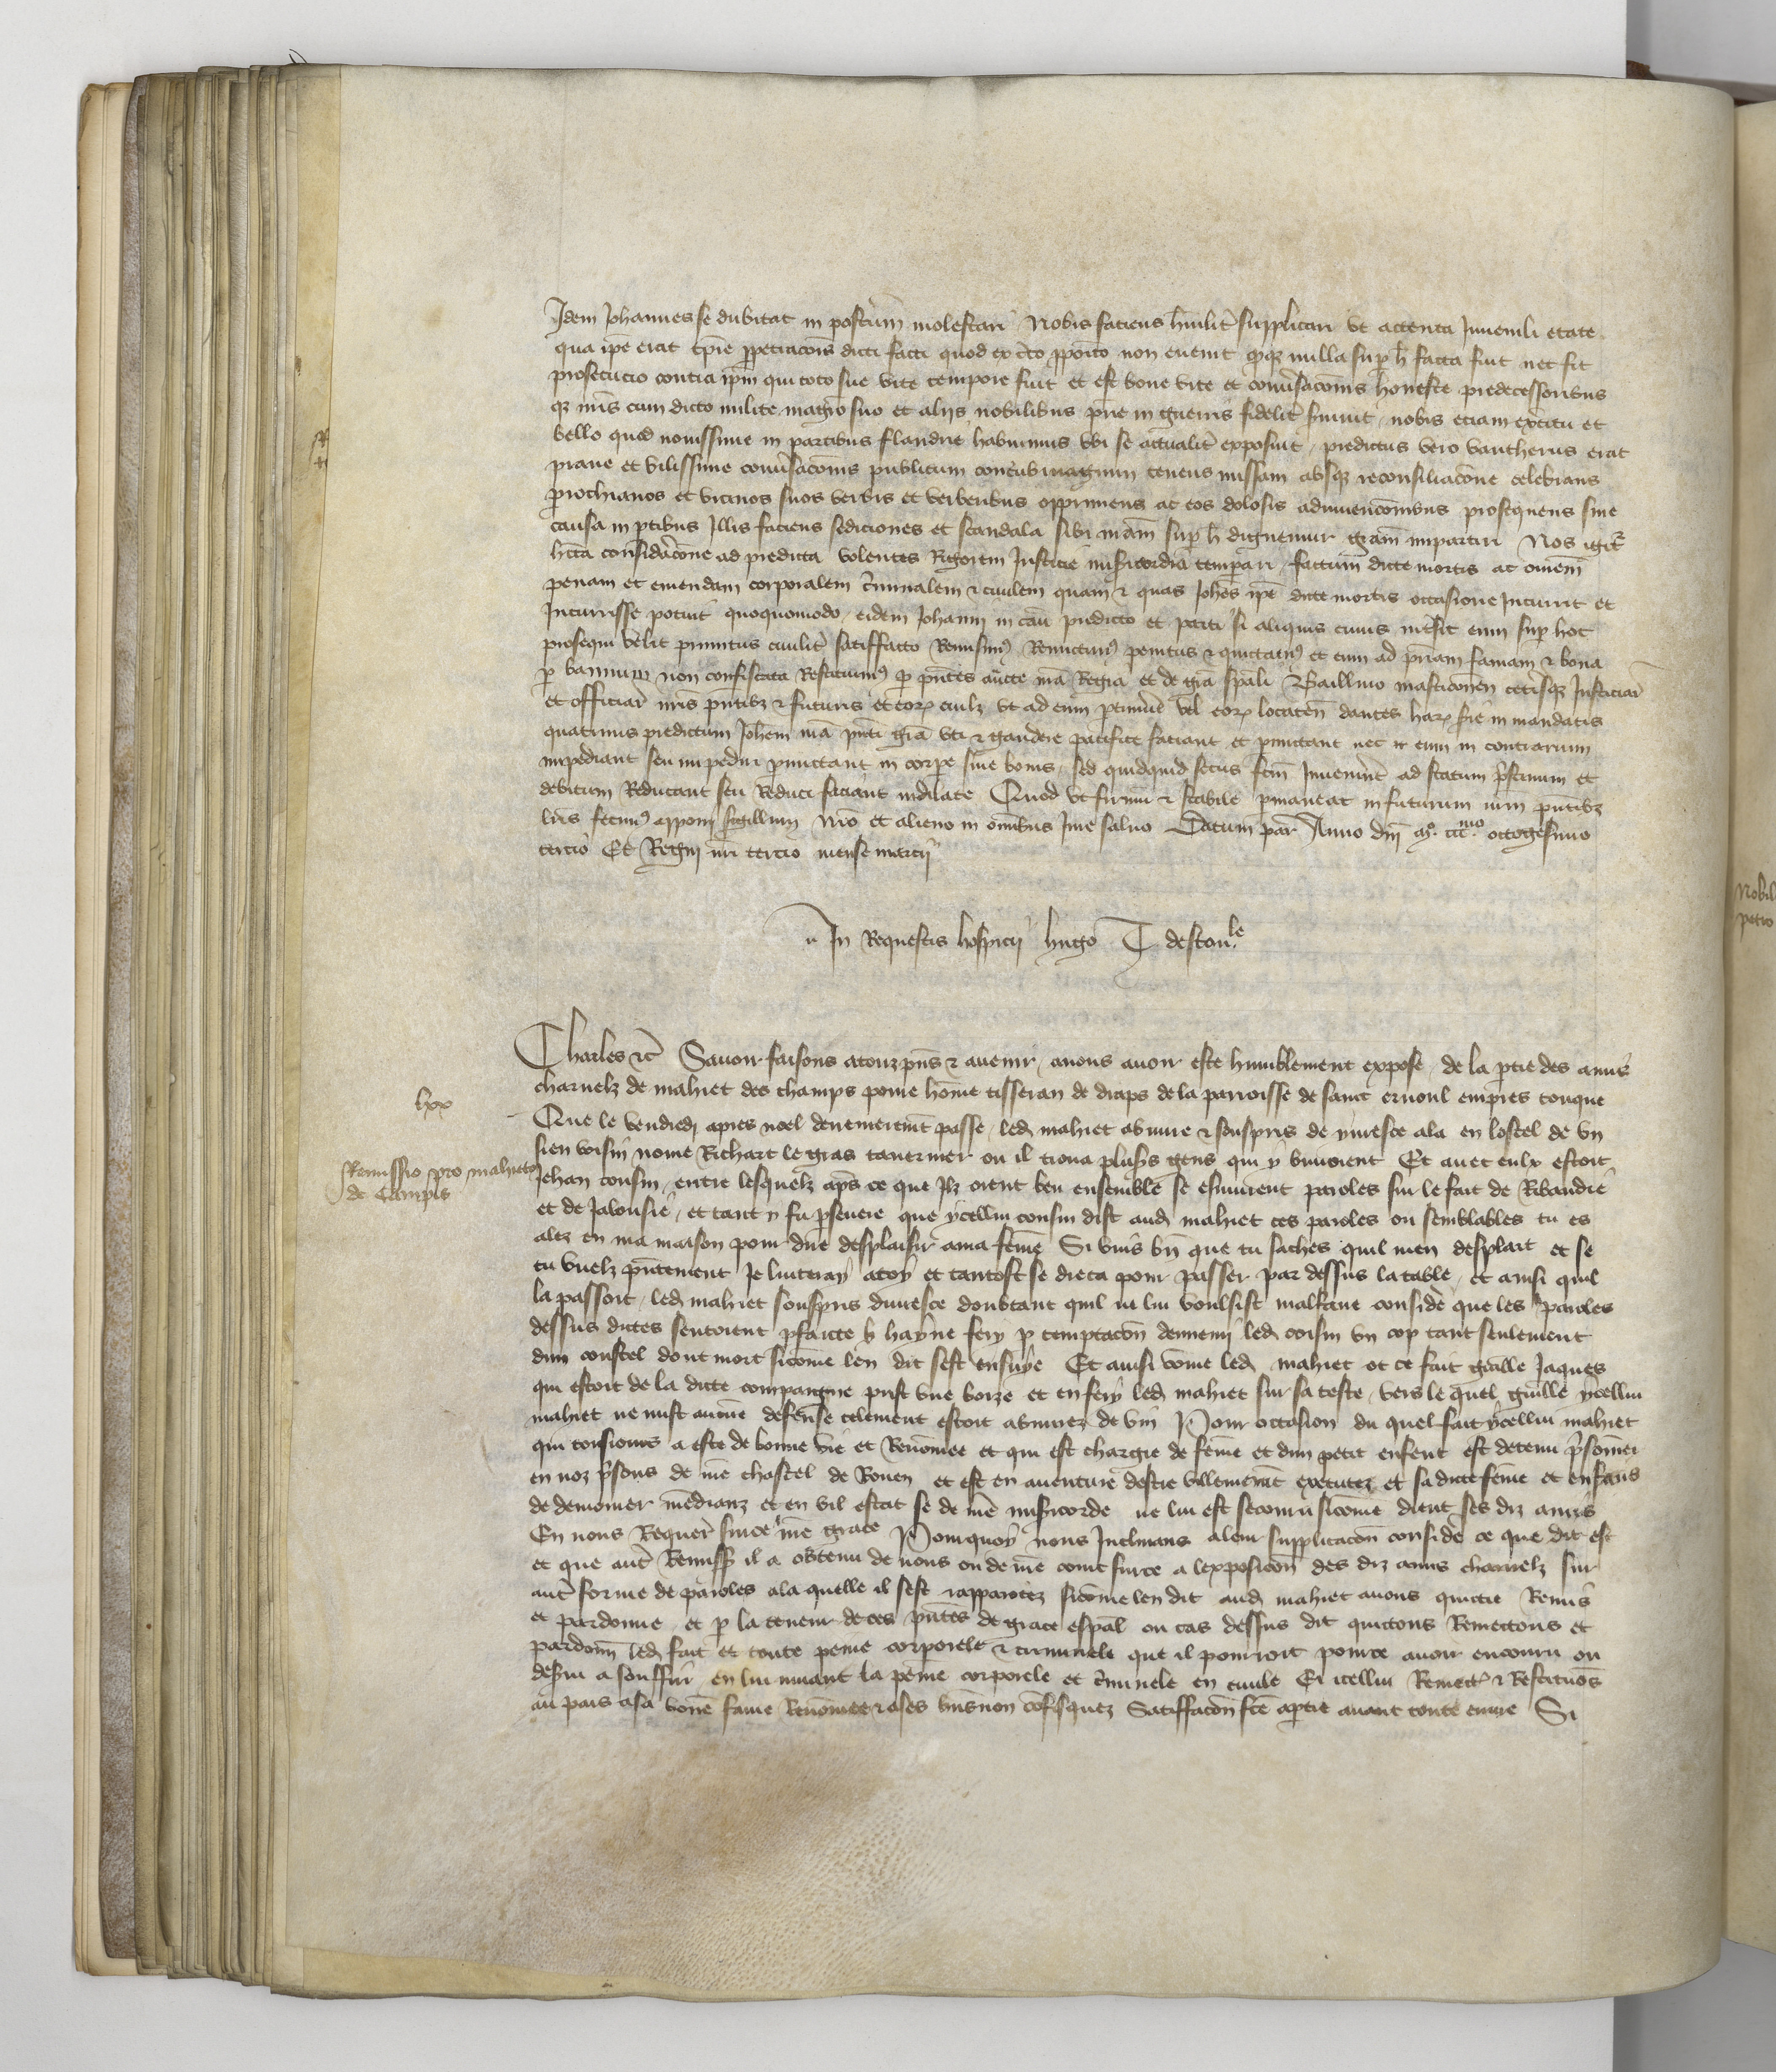 Idem Johannes se dubitat in posterum molestari Nobis faciens humilit supplicari ut attenta Juvenili etate
qua ipe erat tpre ppetracois dicti facti quod ex cto pposito non evenit qz nulla sup h facta fuit nec fit
prosecucio contra ipm qui toto sue vite tempore fuit et est bone vite et conversacois honeste predecessoribus
qz nris cum dicto milite magro suo et alijs nobilibus prie in guerris fidelit servivit nobis etiam exercitu et
bello quod novissime in partibus flandrie habuimus ubi se actualit exposuit predictus vero vautherus erat
prave et vilissime conversacois publicum concubinagium tenens missam absqz reconsiliacone celebrans
prochianos et vicinos suos verbis et verberibus opprimens ac eos dolosis adinvencionibus prosequens sine
causa in ptibus Illis faciens sediciones et scandala sibi nram sup h dignemur gram impartiri Nos igit
hita consideracone ad predicta volentes Rigorem Justicie misericordia temperari factum dicte mortis ac omem
penam et emendam corporalem criminalem & civilem quam & quas Johes ipe dicte mortis occasione Incurrit et
Incurrisse potuit quoquomodo eidem Johanni in cau predicto et parti si aliquis civis intersit eum sup hoc
prosequi velit primitus civilit satisffacto Remisimus Remictimus penitus & quictamus et eum ad priam famam & bona
p bannum non confiscata Restituimus p pntes aucte nra Regia et de gra spali Baillivo matisconen cetisqz Justiciar
et officiar nris pntibz & futuris et eorum cuilz ut ad eum ptinuit vel eorum locaten dantes harum serie in mandatis
quatinus predictum Johem nra pnti gra uti & gaudere pacifice faciant et pmittant nec ipsum in contrarium
impediant seu impediri pmittant in corpe sive bonis sed quidquid secus fcm Invenerint ad statum pstinum et
debitum Reducant seu Reduci faciant indilate Quod ut firmum & stabile pmaneat in futurum nrm pntibz
lris fecimus apponi sigillum Nro et alieno in omibus Jure salvo Datum par Anno dni mo ccc mo octogesimo
tercio Et Regni nri tercio mense marcij
In Requestis hospicij hugo T destoule
Charles etc Savoir faisons atouz pns & avenir anous avoir este humblement expose de la ptie des amis
charnelz de mahiet des champs povre home tisseran de draps de la parroisse de saint ernoul empres touque
Que le vendredi apres noel derrenierement passe led mahiet abuvre & souspris de yvresce ala en lostel de un
sien voisin nome Richart le gras tavernier ou il trova plusrs gens qui y buvoient Et avec eulx estoit
lxx
Remissio pro mahieto
de Campis
Jehan cousin entre lesquelz aps ce que Ilz orent beu ensemble se esmurent paroles sur le fait de Ribaudie
et de Jalousie et tant y fu psevere que ycellui cousin dist aud mahiet ces paroles ou semblables tu es
alez en ma maison pour dire desplaisir ama feme Si vuis bn que tu saches quil men desplait et se
tu vuelz pntement Je luiteray atoy et tantost se dreca pour passer par dessus la table et ainsi quil
la passoit led mahiet souspris duvresce doubtant quil ne lui voulsist malfaire consider que les paroles
dessus dictes sentoient pfaicte hayne fery p temptacon dennemi led cousin un cop tant seulement
dun coustel dont mort sicome len dit sest ensuye Et ainsi come led mahiet ot ce fait guille Jaques
qui estoit de la dicte compaignie prist une borze et en fery led mahiet sur sa teste vers le quel guille ycellui
mahiet ne mist aucune defense telement estoit abuvrez de vin Pour occasion du quel fait ycellui mahiet
qui tousiours a este de bonne vie et Renomee et qui est chargie de feme et dun petit enfent est detenu prisonier
en noz prisons de nre chastel de Rouen et est en aventure destre villement executez et sa dicte feme et enfans
de demourer mendianz et en vil estat se de nre misericorde ne lui est secouru sicome dient ses diz amis
En nous Requer surce nre grace Pourquoy nous Inclinans aleur supplicacon consider ce que dit est
et que aut Remiss il a obtenu de nous ou de nre court surce a lexposicon des diz amis charnelz sur
aut forme de paroles ala quelle il sest rapportez sicome len dit aud mahiet avons quictie Remis
et pardonne et p la teneur de ces pntes de grace espal ou cas dessus dit quictons Remettons et
pardonn led fait et toute peine corporele & criminele que il pourroit pource avoir encouru ou
desservi a souffrir en lui muant la peine corporele et criminele en civile Et icellui Remett & Restituos
au pais asa bonne fame Renomee & ases biens non cofisquez Satiffacon fce aptie avant toute euvre Si